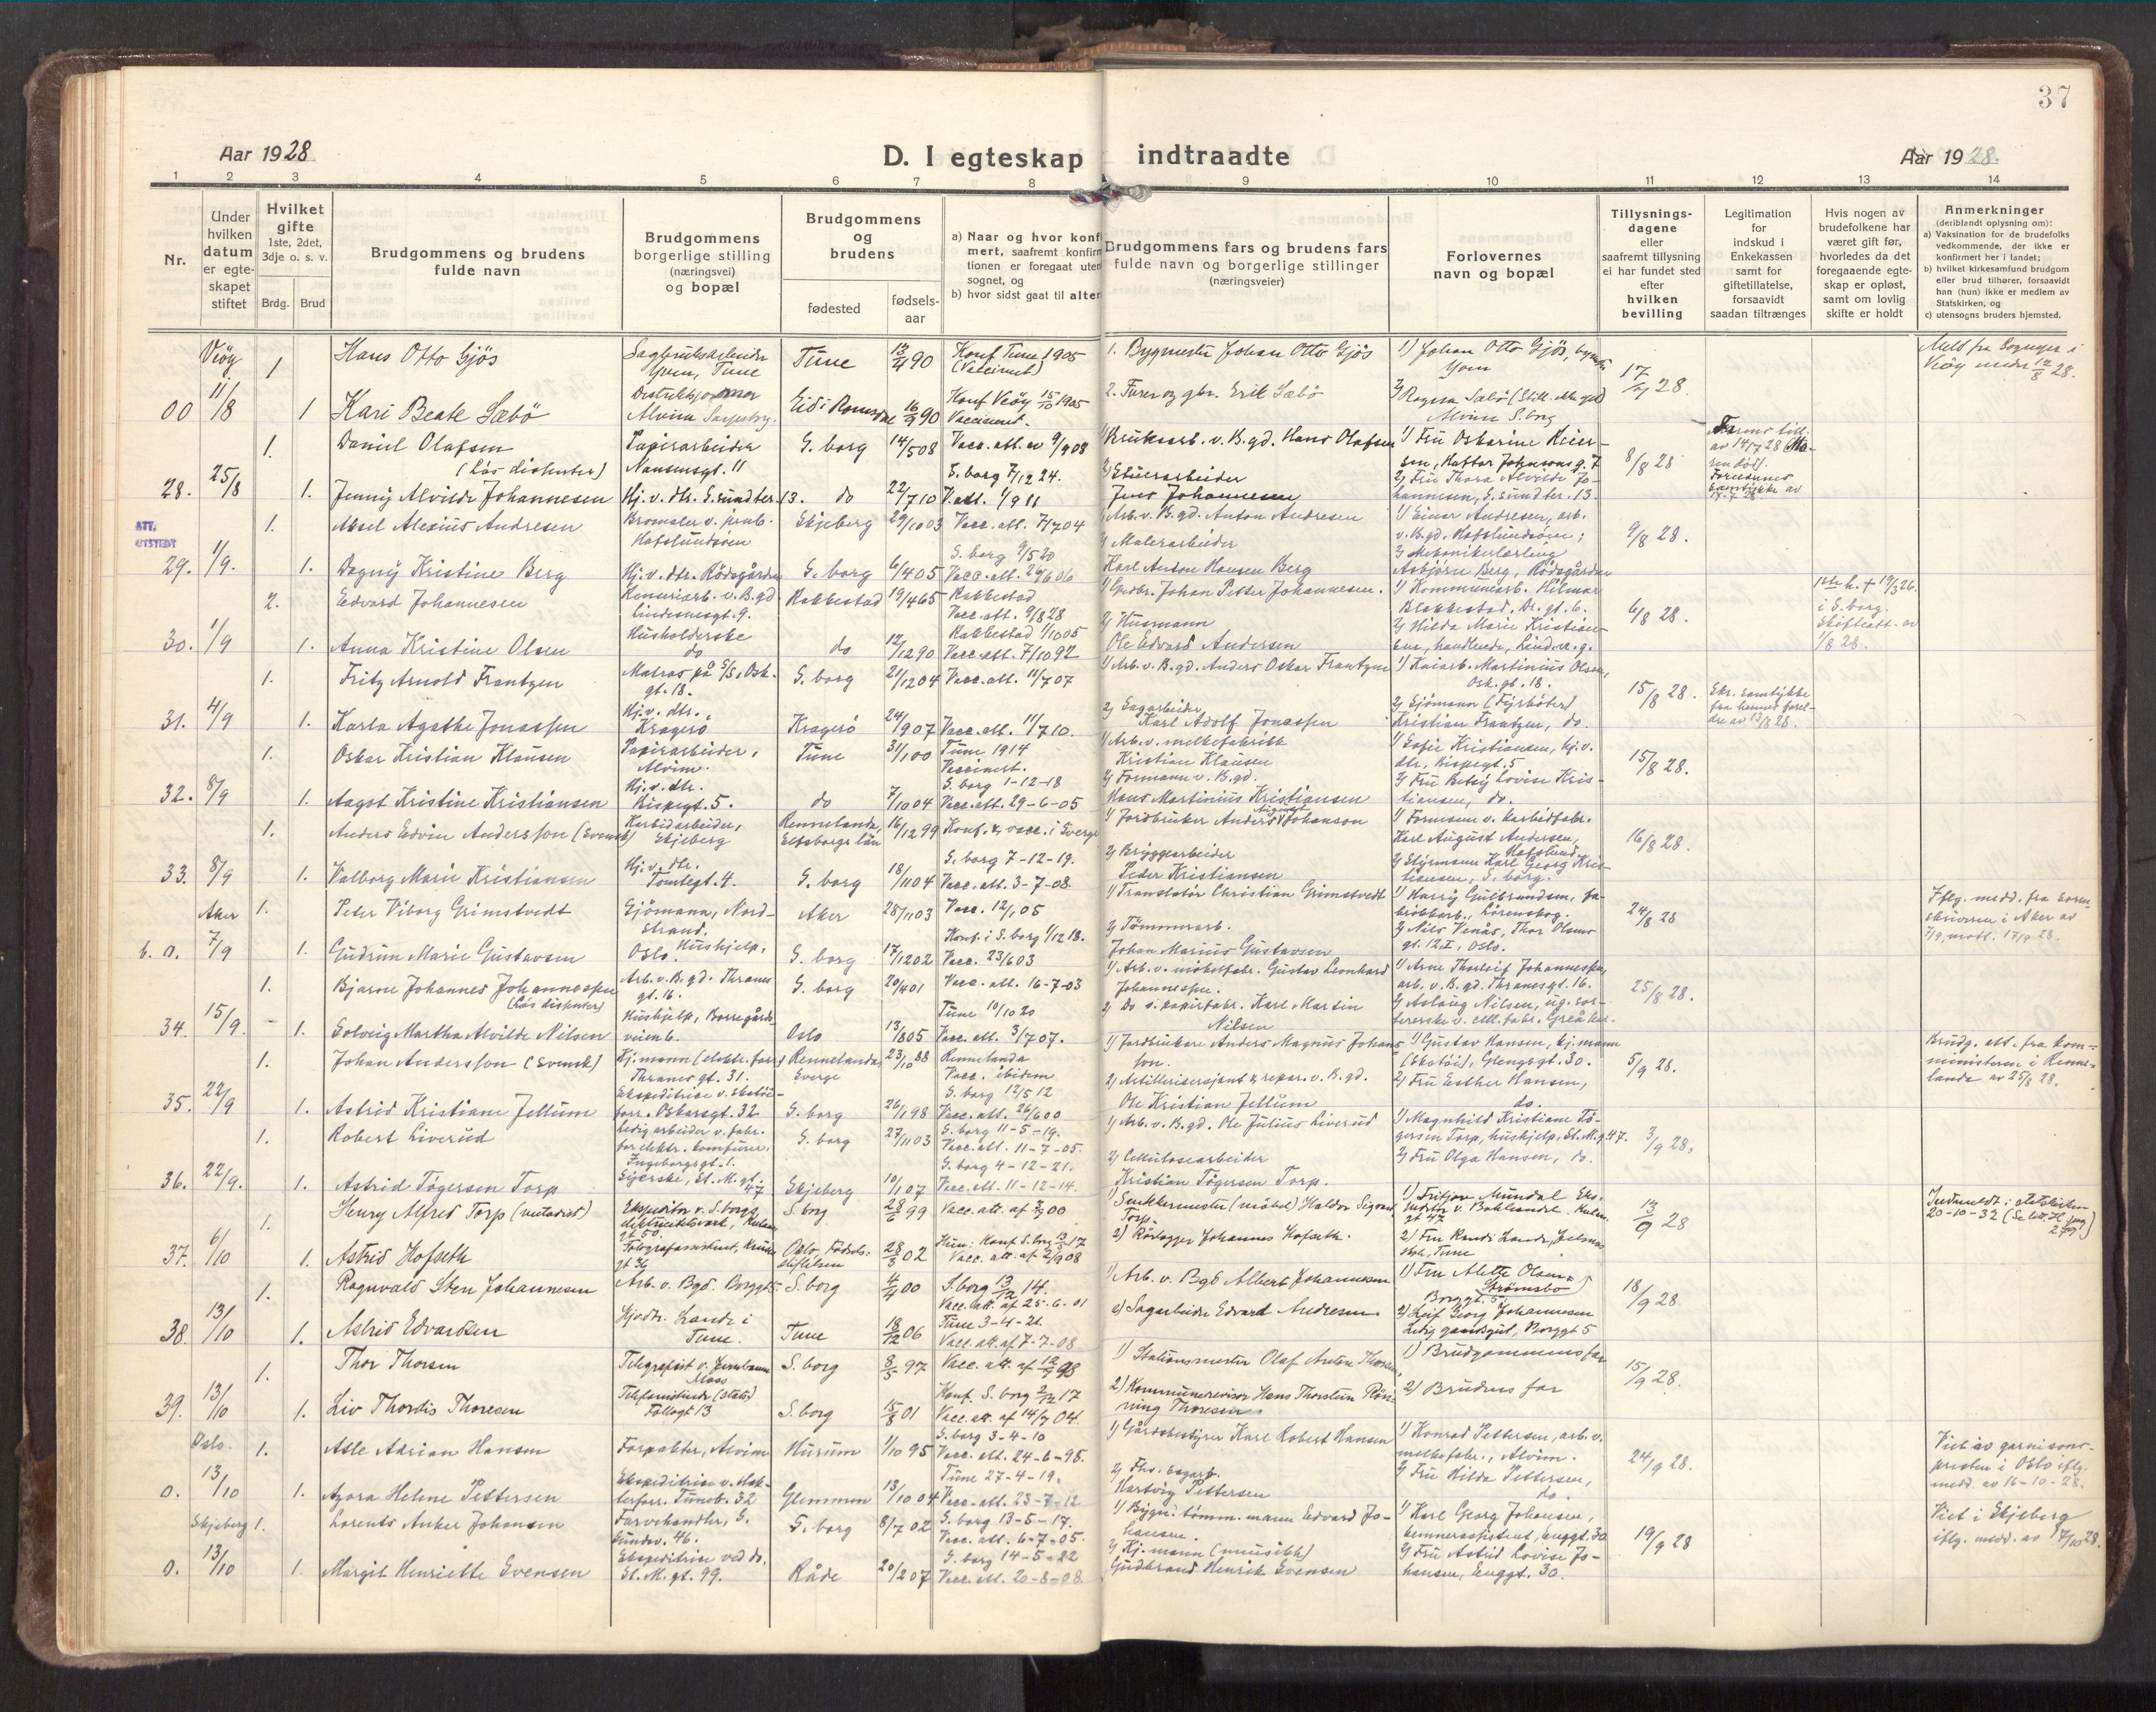 37
Aar 1928
D. I egteskap indtraadte
Aar 1928.
1 2 3 4 5 6 7 8 9 10 11 12 13 14
Nr.
Under hvilken datum er egte-skapet stiftet
Hvilket gifte
1ste, 2det, 3dje o. s. v.
Brdg. Brud
Brudgommens og brudens fulde navn
Brudgommens borgerlige stilling (næringsvei) og bopæl
Brudgommens og brudens
fødested
fødsels-aar
a) Naar og hvor konfi
mert, saafremt konfirm
tionen er foregaat uten
sognet, og
b) hvor sidst gaat til alter
Brudgommens fars og brudens fars fulde navn og borgerlige stillinger (næringsveier)
Forlovernes navn og bopæl
Tillysnings-dagene eller saafremt tillysning ei har fundet sted efter hvilken bevilling
Legitimation for indskud i Enkekassen samt for giftetillatelse, forsaavidt saadan tiltrænges
Hvis nogen av brudefolkene har været gift før, hvorledes da det foregaaende egte-skap er opløst, samt om lovlig skifte er holdt
Anmerkninger
(deriblandt oplysning om):
a) Vaksination for de brudefolks vedkommende, der ikke er konfirmert her i landet;
b) hvilket kirkesamfund brudgom eller brud tilhører, forsaavidt han (hun) ikke er medlem av Statskirken, og
c) utensogns bruders hjemsted.
Veøy 1 Hans Otto Gjøs Sagbruksarbeider Tune 13/4 90 Konf Tune 1905 1. Bygmester Johan Otto Gjøs 1) Johan Otto Gjøs, 17/7 28
00 11/8 1 Kari Beate Sæbö Alvim Sarpsborg. 16/9 90 Konf Veöy 15/10 1905 Vaccinert. 2. Furer og gbr. Erik Sæbö 2) Ragna Sæbö Alvim S.borg
1. Daniel Olafsen (Løs disenter) Papirarbeider Nansensgt. 11 S. borg 14/5 08 Vacc. att. av 9/9 08 1) Bruksarb. v. B.gd. Hans Olafsen 1) Fru Oskarine Heier- 8/8 28
28. 25/8 1. Jenny Alvilde Johannesen Hj. v. dtr. S.sundter. 13. do 22/7 10 S. borg 7/12 24. V. att. 1/9 11 Jens Johannesen 2) Fru Thora Alvilde Jo-hannesen, S.sundter. 13.
ATT. UTSTEDT
1. Aksel Alexius Andresen Hafslundsöen Skjeberg 29/10 03 Vacc. att. 7/7 04 1) Arb. v. B.gd. Anton Andresen 1) Einar Andresen, arb. v. B.gd. Hafslundsöen; 9/8 28.
29. 1/9. 1. Dagny Kristine Berg Hj. v. dtr. Rödsgården S. borg 6/4 05 S. borg 9/5 20 2) Malerarbeider Karl Anton Hansen Berg 2) Mekanikerlærling Asbjörn Berg, Rödsgården
2. Edvard Johannesen Lindemesgt. 9. Rakkestad 19/4 65 Rakkestad Vacc. att. 9/8 28 1) Gardbr. Johan Petter Johannesen. 1) Kommunearb. Hilmar Blakkestad, Dr. gt. 6. 6/8 28. i S. borg.
30. 1/9 1. Anna Kristine Olsen Husholderske do do 12/12 90 Rakkestad 1/10 05 Vacc. att. 7/10 92 2) Husmann Ole Edvard Andersen 2) Hilda Marie Kristian-
1. Fritz Arnold Frantzen Matros på S/S, Osk. gt. 18. S. borg 21/12 04 Vacc. att. 11/7 07 1) Arb. v. B.gd. Anders Oskar Frantzen 1) Kaiarb. Martinius Olsen, Osk. gt. 18. 15/8 28.
31. 4/9 1. Karla Agathe Jonassen Hj. v. dtr., Kragerö Kragerö 24/9 07 Vacc. att. 11/7 10. 2) Sagarbeider Karl Adolf Jonassen 2) Sjömann (Fyrböter) Kristian Frantzen, do.
1. Oskar Kristian Klausen Papirarbeider, Alvim. Tune 31/1 00 Tune 1914 Vaccinert. 1) Arb. v. melkefabrikk Kristian Klausen 1) Sofie Kristiansen, hj. v. dtr, Bispegt. 5 15/8 28.
32. 8/9 1. Aagot Kristine Kristiansen Hj. v. dtr. Bispegt. 5. do 7/10 04 S. borg 1-12-18 Vacc. att. 29-6-05 2) Formann v. B.gd. Hans Martinius Kristiansen 2) Fru Betsy Lovise Kris-tiansen, do.
1. Anders Edvin Andersson (Svensk) Karbidarbeider, Skjeberg Rennelanda, Elfsborgs län 16/12 99 Konf. & vacc. i Sverge 1) Jordbruker Anders August Johanson 1) Formann v. karbidfabr. Karl August Andersen, Hafslund 16/8 28.
33. 8/9 1. Valborg Marie Kristiansen Hj. v. dtr. Tomtegt. 4. S. borg 18/11 04 S. borg 7-12-19. Vacc. att. 3-7-08. 2) Bryggearbeider Peder Kristiansen 2) Styrmann Karl Georg Kris-tiansen, S. borg.
Aker 1. Peter Viborg Grimstvedt Sjömann, Nord-strand. Aker 28/11 03 Vacc. 12/1 05 1) Translatör Christian Grimstvedt 1) Harry Gulbrandsen, fa-brikkarb., Lörenskog. 24/8 28
b. 0. 7/9 1. Gudrun Marie Gustavsen Oslo. Hushjelp. S. borg 17/12 02 Konf. i S. borg 1/12 18. Vacc. 23/6 03 2) Tömmerarb. Johan Marius Gustavsen 2) Nils Venås, Thor Olsens gt. 12 I, Oslo.
1. Bjarne Johannes Johannessen (Løs disenter) Arb. v. B.gd. Thranes gt. 16. S. borg 20/4 01 Vacc. att. 16-7-03 1) Arb. v. möbelfabr. Gustav Leonhard Johannessen. 1) Arne Thorleif Johannessen, arb. v. B.gd. Thranesgt. 16. 25/8 28.
34. 15/9. 1. Solveig Martha Alvilde Nilsen Hushjelp, Borregårds-veien 6. Oslo 13/8 05 Tune 10/10 20 Vacc. att. 3/7 07. 2) Do v. papirfabr. Karl Martin Nilsen 2) Aslaug Nilsen, ug. sor-tererske v. cell. fabr.
1. Johan Andersson (Svensk) Thranes gt. 31. Rennelanda Sverge 23/10 88 Rennelanda Vacc. ibidem 1) Jordbrukare Anders Magnus Johans-son. 1) Gustav Hansen, hj.mann (Skotöi), Glengsgt. 30. 5/9 28. Brudg. att. fra kom-ministeren i Renne-landa av 25/8 28.
35. 22/9 1. Astrid Kristiane Jellum Ekspeditrise v. skotöi-forr. Oskarsgt. 32 S. borg 26/1 98 S. borg 12/5 12 Vacc. att. 26/6 00 2) Artillerisersjant & repar. v. B.gd. Ole Kristian Jellum 2) Fru Esther Hansen, do.
1. Robert Liverud for elektr. komfurer, Ingeborgsgt. 1. S. borg 27/11 03 S. borg 11-5-19. Vacc. att. 11-7-05. 1) Arb. v. B.gd. Ole Julius Liverud 1) Magnhild Kristiane Tö-gersen Torp, hushjelp, St. M. g. 47. 3/9 28.
36. 22/9. 1. Astrid Tögersen Torp Syerske, St. M. gt. 47 Skjeberg 10/1 07 S. borg 4-12-21. Vacc. att. 11-12-14. 2) Cellulosearbeider Kristian Tögersen Torp. 2) Fru Olga Hansen, do.
1. Henry Alfred Torp (metodist) Ekspeditör v. S.borgs S. borg 28/6 99 Vacc. att. af 00 1) Snekkermester (möbel) Haldor Sigvart Torp. 1) Fritjov Mundal Eks-peditör v. Bokhandel. gt 47 13/9 28 Indmeldt i statskirken 20-10-32
37. 6/10 1. Astrid Hofseth Telegrafassistent, gt 36 Oslo, Fødsels-stiftelsen 28/3 02 Vacc. att. af 08 2) Rörlegger Johannes Hofseth. 2) Fru Randi Lande, Tune
1. Ragnvald Sten Johannesen Arb. v. Bgd. Borggt 5 S. borg 4/4 00 S. borg 13/12 14. Vacc. att. af 25-6-01 1) Arb. v. Bgd Albert Johannesen 1) Fru Alette Olsen, Strømsbo Borggt. 5. 18/9 28.
38. 13/10 1. Astrid Edvardsen Hjvdtr. Lande i Tune. Tune 18/12 06 Tune 3-4-21. Vacc. att. af 7-7-08 2) Sagarbeider Edvard Andresen 2) Leif Georg Johannesen Borggt 5
1. Thor Thorsen Telegrafist v. Jernbanen Moss S. borg 3/5 97 Vacc. att. af 12/9 98 1) Stationsmester Olaf Anton Thorsen 1) Brudgommens far 15/9 28.
39. 13/10 1. Liv Thordis Thoresen Follogt 13 S. borg 15/8 01 Konf. S. borg 17 Vacc. att. af 14/7 04. 2) Kommunerevisor Hans Thorstein Rön-ning Thoresen 2) Brudens far
Oslo. 1. Asle Adrian Hansen Forpakter, Alvim Hurum 1/10 95 S. borg 3-4-10 Vacc. att. 24-6-98. 1) Gårdsbestyrer Karl Robert Hansen 1) Konrad Pettersen, arb. v. melkefabr., Alvim. 24/9 28. Viet av garnisons-presten i Oslo iflg. medd. av 16-10-28.
0. 13/10 1. Agora Helene Pettersen Tuneb. 32 Glemmen 13/10 04 Tune 27-4-19. Vacc. att. 23-7-12 Hartvig Pettersen 2) Fru Hilda Pettersen, do.
Skjeberg 1. Lorents Anker Johansen Farvehandler, S. Sundsv. 46. S. borg 8/7 02 S. borg 13-5-17. Vacc. att. 6-7-05. 1) Bygn. tömm. mann Edvard Jo-hansen. 1) Karl Georg Johansen, kemnerassistent, Enggt. 30 19/9 28 Viet i Skjeberg iflg. medd. av 17/10 28.
0. 13/10 1. Margit Henriette Evensen Ekspeditrise ved do. St. M. gt. 99. Råde 20/2 07 S. borg 14-5-22 Vacc. att. 20-8-08. 2) Hj. mann (musikk) Gudbrand Henrik Evensen 2) Fru Astrid Lovise Jo-hansen, Enggt. 30.